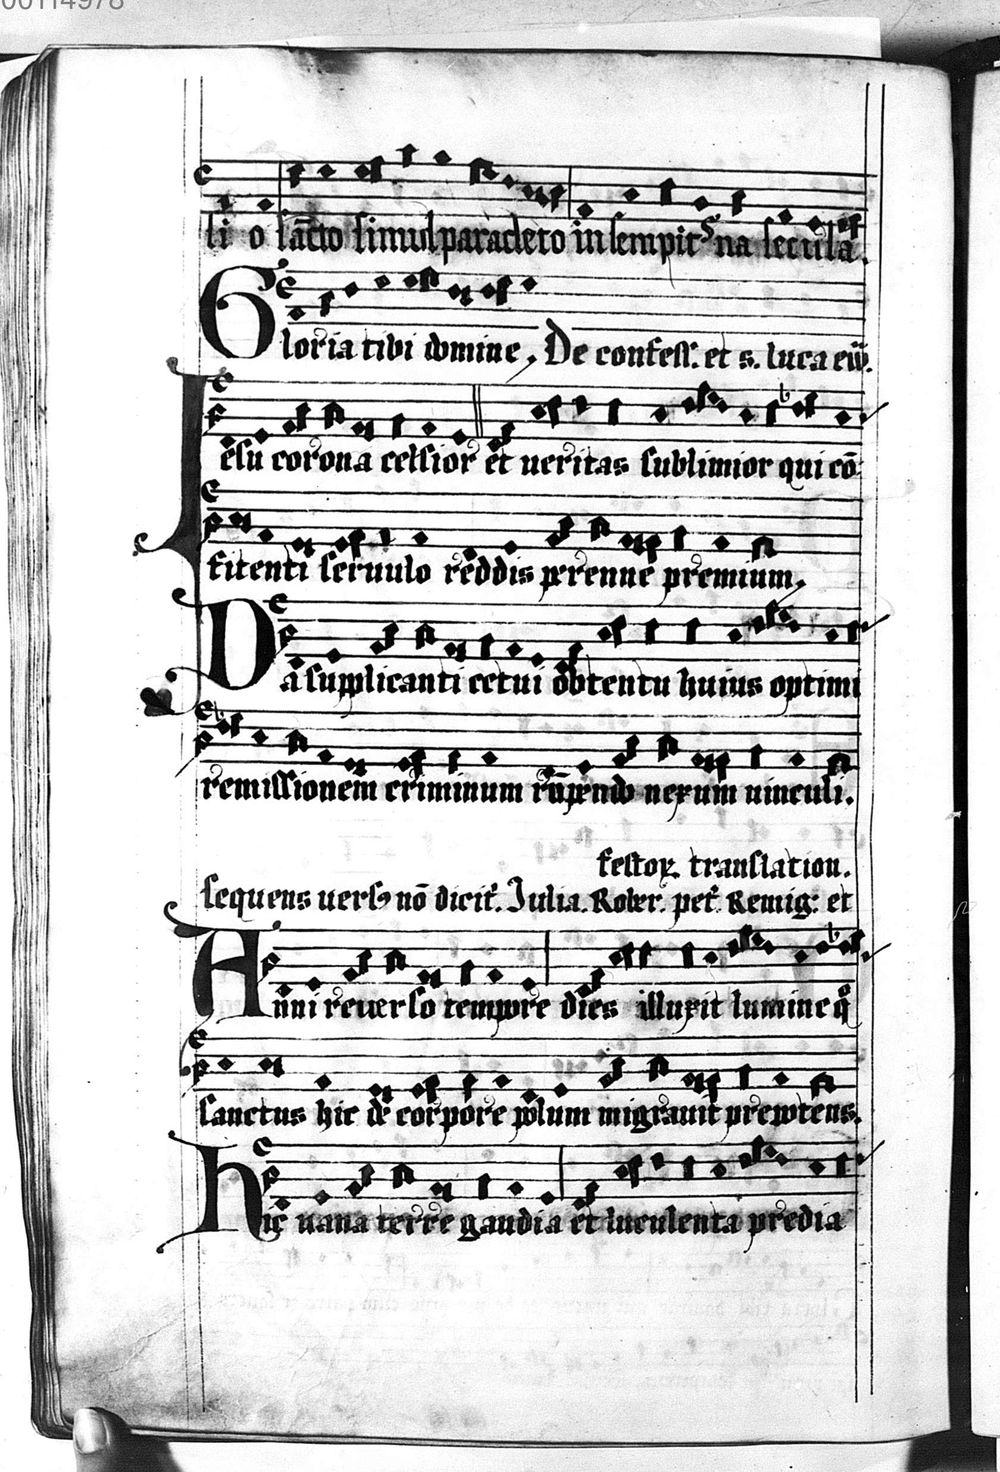 00114978
li o sācto simul paracleto in sempit͛na secula.
Gloria tibi domine, De confess. et s. luca eū̄.
Iesu corona celsior et ueritas sublimior qui cō
fitenti seruulo reddis perenne premium.
Da supplicanti cetui obtentu huius optimi
remissionem criminum rūpendo nexum uinculi.
festoꝝ translation.
sequens uers9 nō dicit̉. Iulia. Rober. pet̉. Remig: et
Anni reuerso tempore dies illuxit lumine q̊
sanctus hic de corpore polum migrauit prepotens.
Hic uana terre gaudia et luculenta predia